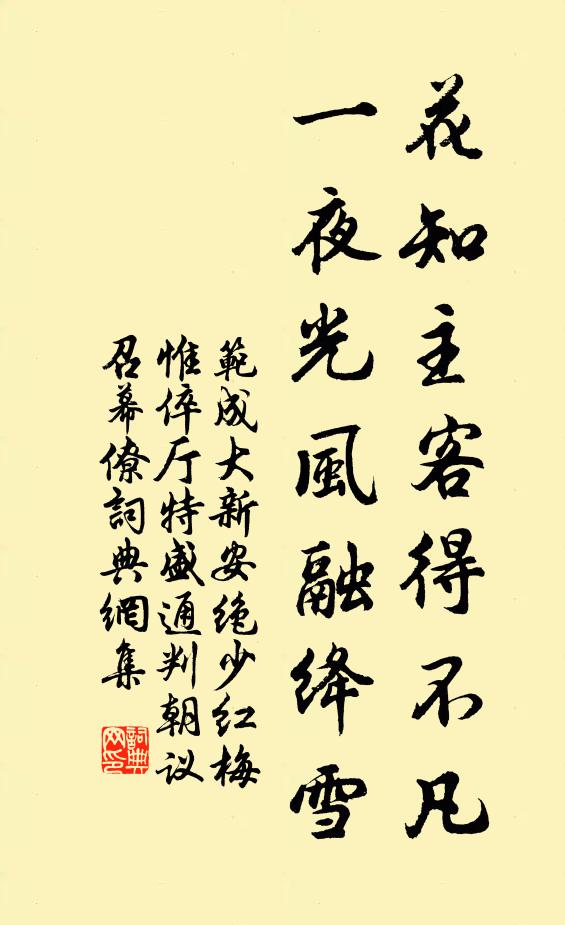 花知主客得不凡
一夜光風融绛雪
範成大新安绝少红梅
惟倅厅特盛通判朝议
召幕僚詞典網集
詞典
网